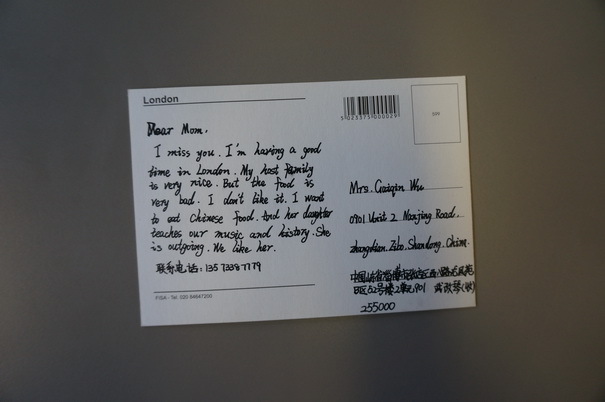 London
Dear Mom,
I miss you. I'm having a good
time in London. My host family
is very nice. But the food is
very bad. I don't like it. I want
to eat Chinese food. And her daughter
teaches our music and history. She
is outgoing. We like her.
联系电话:
FISA - Tel: 020 84847200
5 023375 000029
Mrs. Wu
0901 Unit 2 Nanjing Road
zhangdian. Zibo. Shandong. China.
中国山东省淄博
B区62号楼2单元901
255000